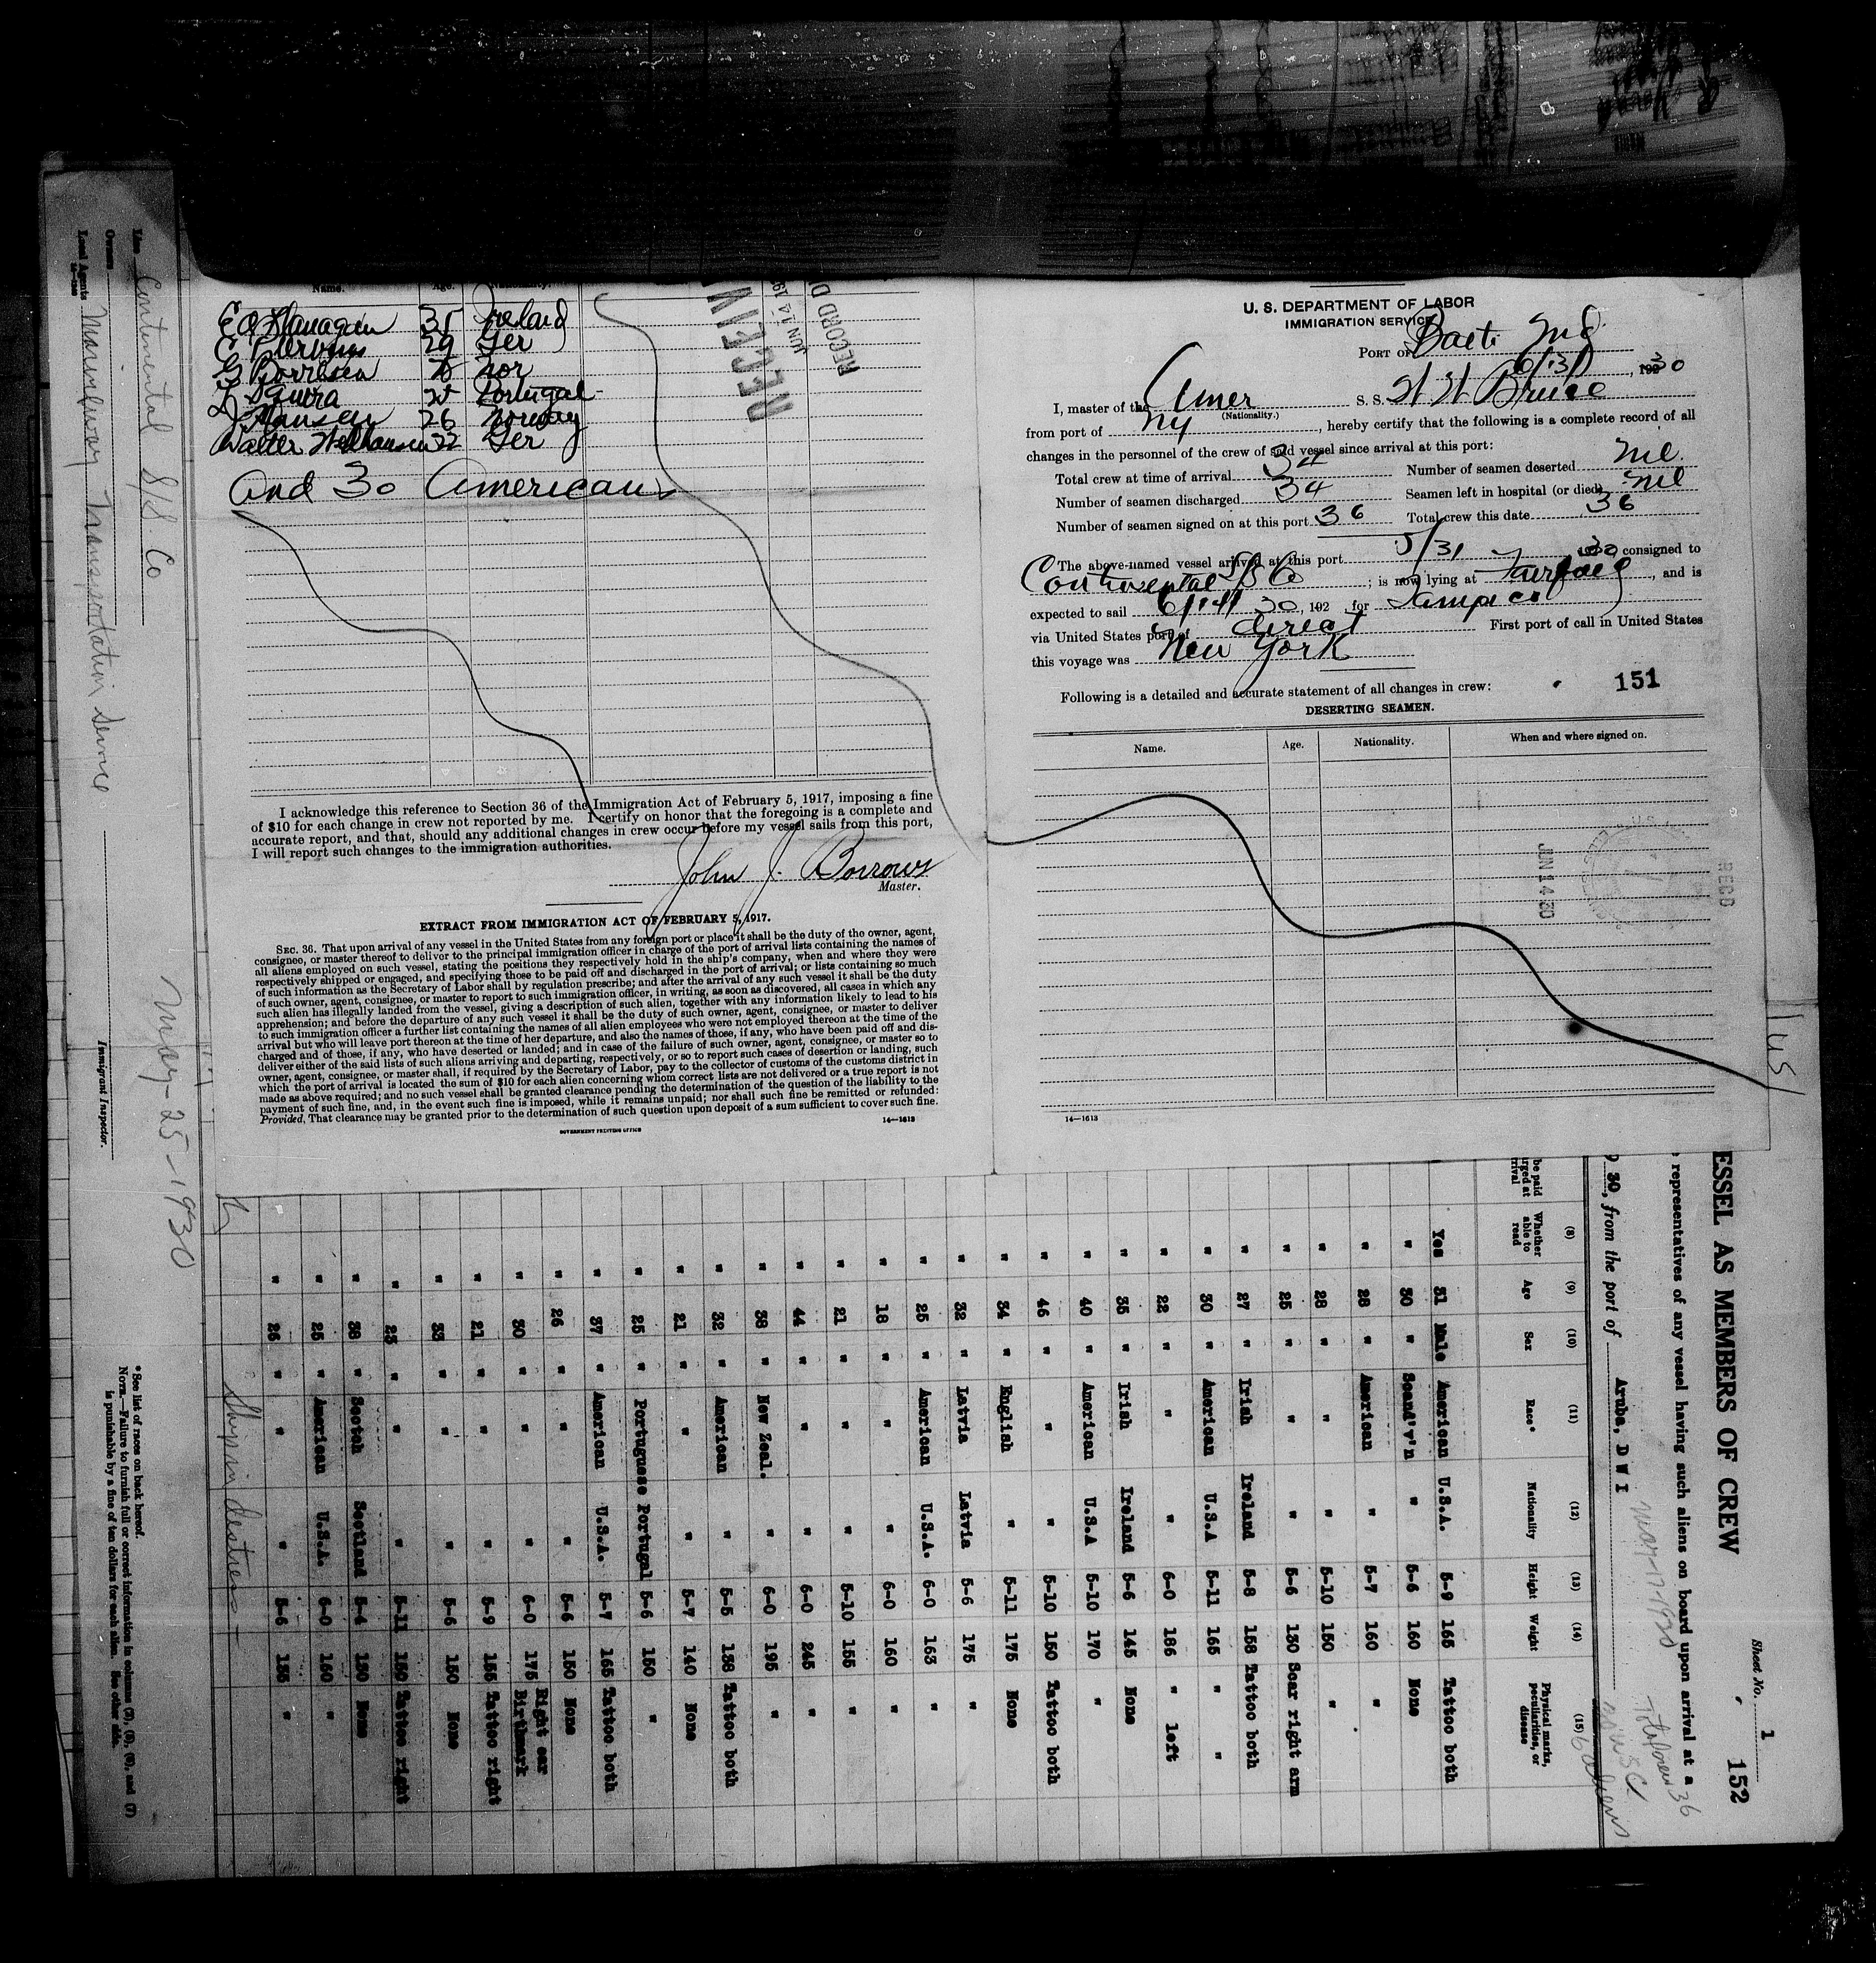 Name. Age. Nationality.
E O Flanagan 35 Ireland
29 Ger
Nor
Portugal
J Hansen 26 Norway
Walter 22 Ger
and 30 Americans
RECEIV
JUN 14 19
RECORD D
I acknowledge this reference to Section 36 of the Immigration Act of February 5, 1917, imposing a fine
of $10 for each change in crew not reported by me. I certify on honor that the foregoing is a complete and
accurate report, and that, should any additional changes in crew occur before my vessel sails from this port,
I will report such changes to the immigration authorities.
John J. Borrows
Master.
EXTRACT FROM IMMIGRATION ACT OF FEBRUARY 5, 1917.
SEC. 36. That upon arrival of any vessel in the United States from any foreign port or place it shall be the duty of the owner, agent,
consignee, or master thereof to deliver to the principal immigration officer in charge of the port of arrival lists containing the names of
all aliens employed on such vessel, stating the positions they respectively hold in the ship's company, when and where they were
respectively shipped or engaged, and specifying those to be paid off and discharged in the port of arrival; or lists containing so much
of such information as the Secretary of Labor shall by regulation prescribe; and after the arrival of any such vessel it shall be the duty
of such owner, agent, consignee, or master to report to such immigration officer, in writing, as soon as discovered, all cases in which any
such alien has illegally landed from the vessel, giving a description of such alien, together with any information likely to lead to his
apprehension; and before the departure of any such vessel it shall be the duty of such owner, agent, consignee, or master to deliver
to such immigration officer a further list containing the names of all alien employees who were not employed thereon at the time of the
arrival but who will leave port thereon at the time of her departure, and also the names of those, if any, who have been paid off and dis-
charged and of those, if any, who have deserted or landed; and in case of the failure of such owner, agent, consignee, or master so to
deliver either of the said lists of such aliens arriving and departing, respectively, or so to report such cases of desertion or landing, such
owner, agent, consignee, or master shall, if required by the Secretary of Labor, pay to the collector of customs of the customs district in
which the port of arrival is located the sum of $10 for each alien concerning whom correct lists are not delivered or a true report is not
made as above required; and no such vessel shall be granted clearance pending the determination of the question of the liability to the
payment of such fine, and, in the event such fine is imposed, while it remains unpaid; nor shall such fine be remitted or refunded:
Provided, That clearance may be granted prior to the determination of such question upon deposit of a sum sufficient to cover such fine.
GOVERNMENT PRINTING OFFICE 14—1613
U. S. DEPARTMENT OF LABOR
IMMIGRATION SERVICE
PORT OF Balti Md.
6/31, 1930
I, master of the Amer S. S. W W Bruce
(Nationality.)
from port of NY, hereby certify that the following is a complete record of all
changes in the personnel of the crew of said vessel since arrival at this port:
Total crew at time of arrival 34 Number of seamen deserted nil.
Number of seamen discharged 34 Seamen left in hospital (or died) nil
Number of seamen signed on at this port 36 Total crew this date 36
The above-named vessel arrived at this port 5/31 1930 consigned to
Continental SS Co; is now lying at Fairfield, and is
expected to sail 6/4 30, 192 for Tampico
via United States port of direct First port of call in United States
this voyage was New York
Following is a detailed and accurate statement of all changes in crew: 151
DESERTING SEAMEN.
Name. Age. Nationality. When and where signed on.
JUN 14 30
REC'D
14—1613
Line Continental S/S Co
Owners
Local Agents Marine Transportation Service
May-25-1930
Immigrant Inspector.
*See list of races on back hereof.
NOTE.—Failure to furnish full or correct information in columns (2), (5), (6), and (7)
is punishable by a fine of ten dollars for each alien. See other side.
Sheet No. 1
152
ESSEL AS MEMBERS OF CREW
representatives of any vessel having such aliens on board upon arrival at a
30, from the port of Aruba, D W I
(8) (9) (10) (11) (12) (13) (14) (15)
Whether able to read Age Sex Race* Nationality Height Weight Physical marks, peculiarities, or disease
Yes 31 Male American U.S.A. 5-9 165 Tattoo both
" 30 " Scand'v'n " 5-6 160 None
" 28 " American " 5-7 160 "
" 28 " " " 5-10 150 "
" 25 " " " 5-6 130 Scar right arm
" 27 " Irish Ireland 5-8 158 Tattoo both
" 30 " American U.S.A 5-11 165 " "
" 22 " " " 6-0 186 " left
" 35 " Irish Ireland 5-6 145 None
" 40 " American U.S.A 5-10 170 "
" 46 " " " 5-10 150 Tattoo both
" 34 " English " 5-11 175 None
" 32 " Latvia Latvia 5-6 175 "
" 25 " American U.S.A. 6-0 163 "
" 18 " " " 6-0 160 "
" 21 " " " 5-10 155 "
" 44 " " " 6-0 245 "
" 38 " New Zeal. " 6-0 195 "
" 32 " American " 5-5 138 Tattoo both
" 21 " " " 5-7 140 None
" 25 " Portuguese Portugal 5-6 150 "
" 37 " American U.S.A. 5-7 165 Tattoo both
" 26 " " " 5-6 150 None
" 30 " " " 6-0 175 Right ear Birthmark
" 21 " " " 5-9 155 Tattoo right
" 33 " " " 5-6 150 None
" 23 " " " 5-11 150 Tattoo right
" 38 " Scotch Scotland 5-4 130 None
" 25 " American U.S.A. 6-0 160 "
" 26 " " " 5-6 135 "